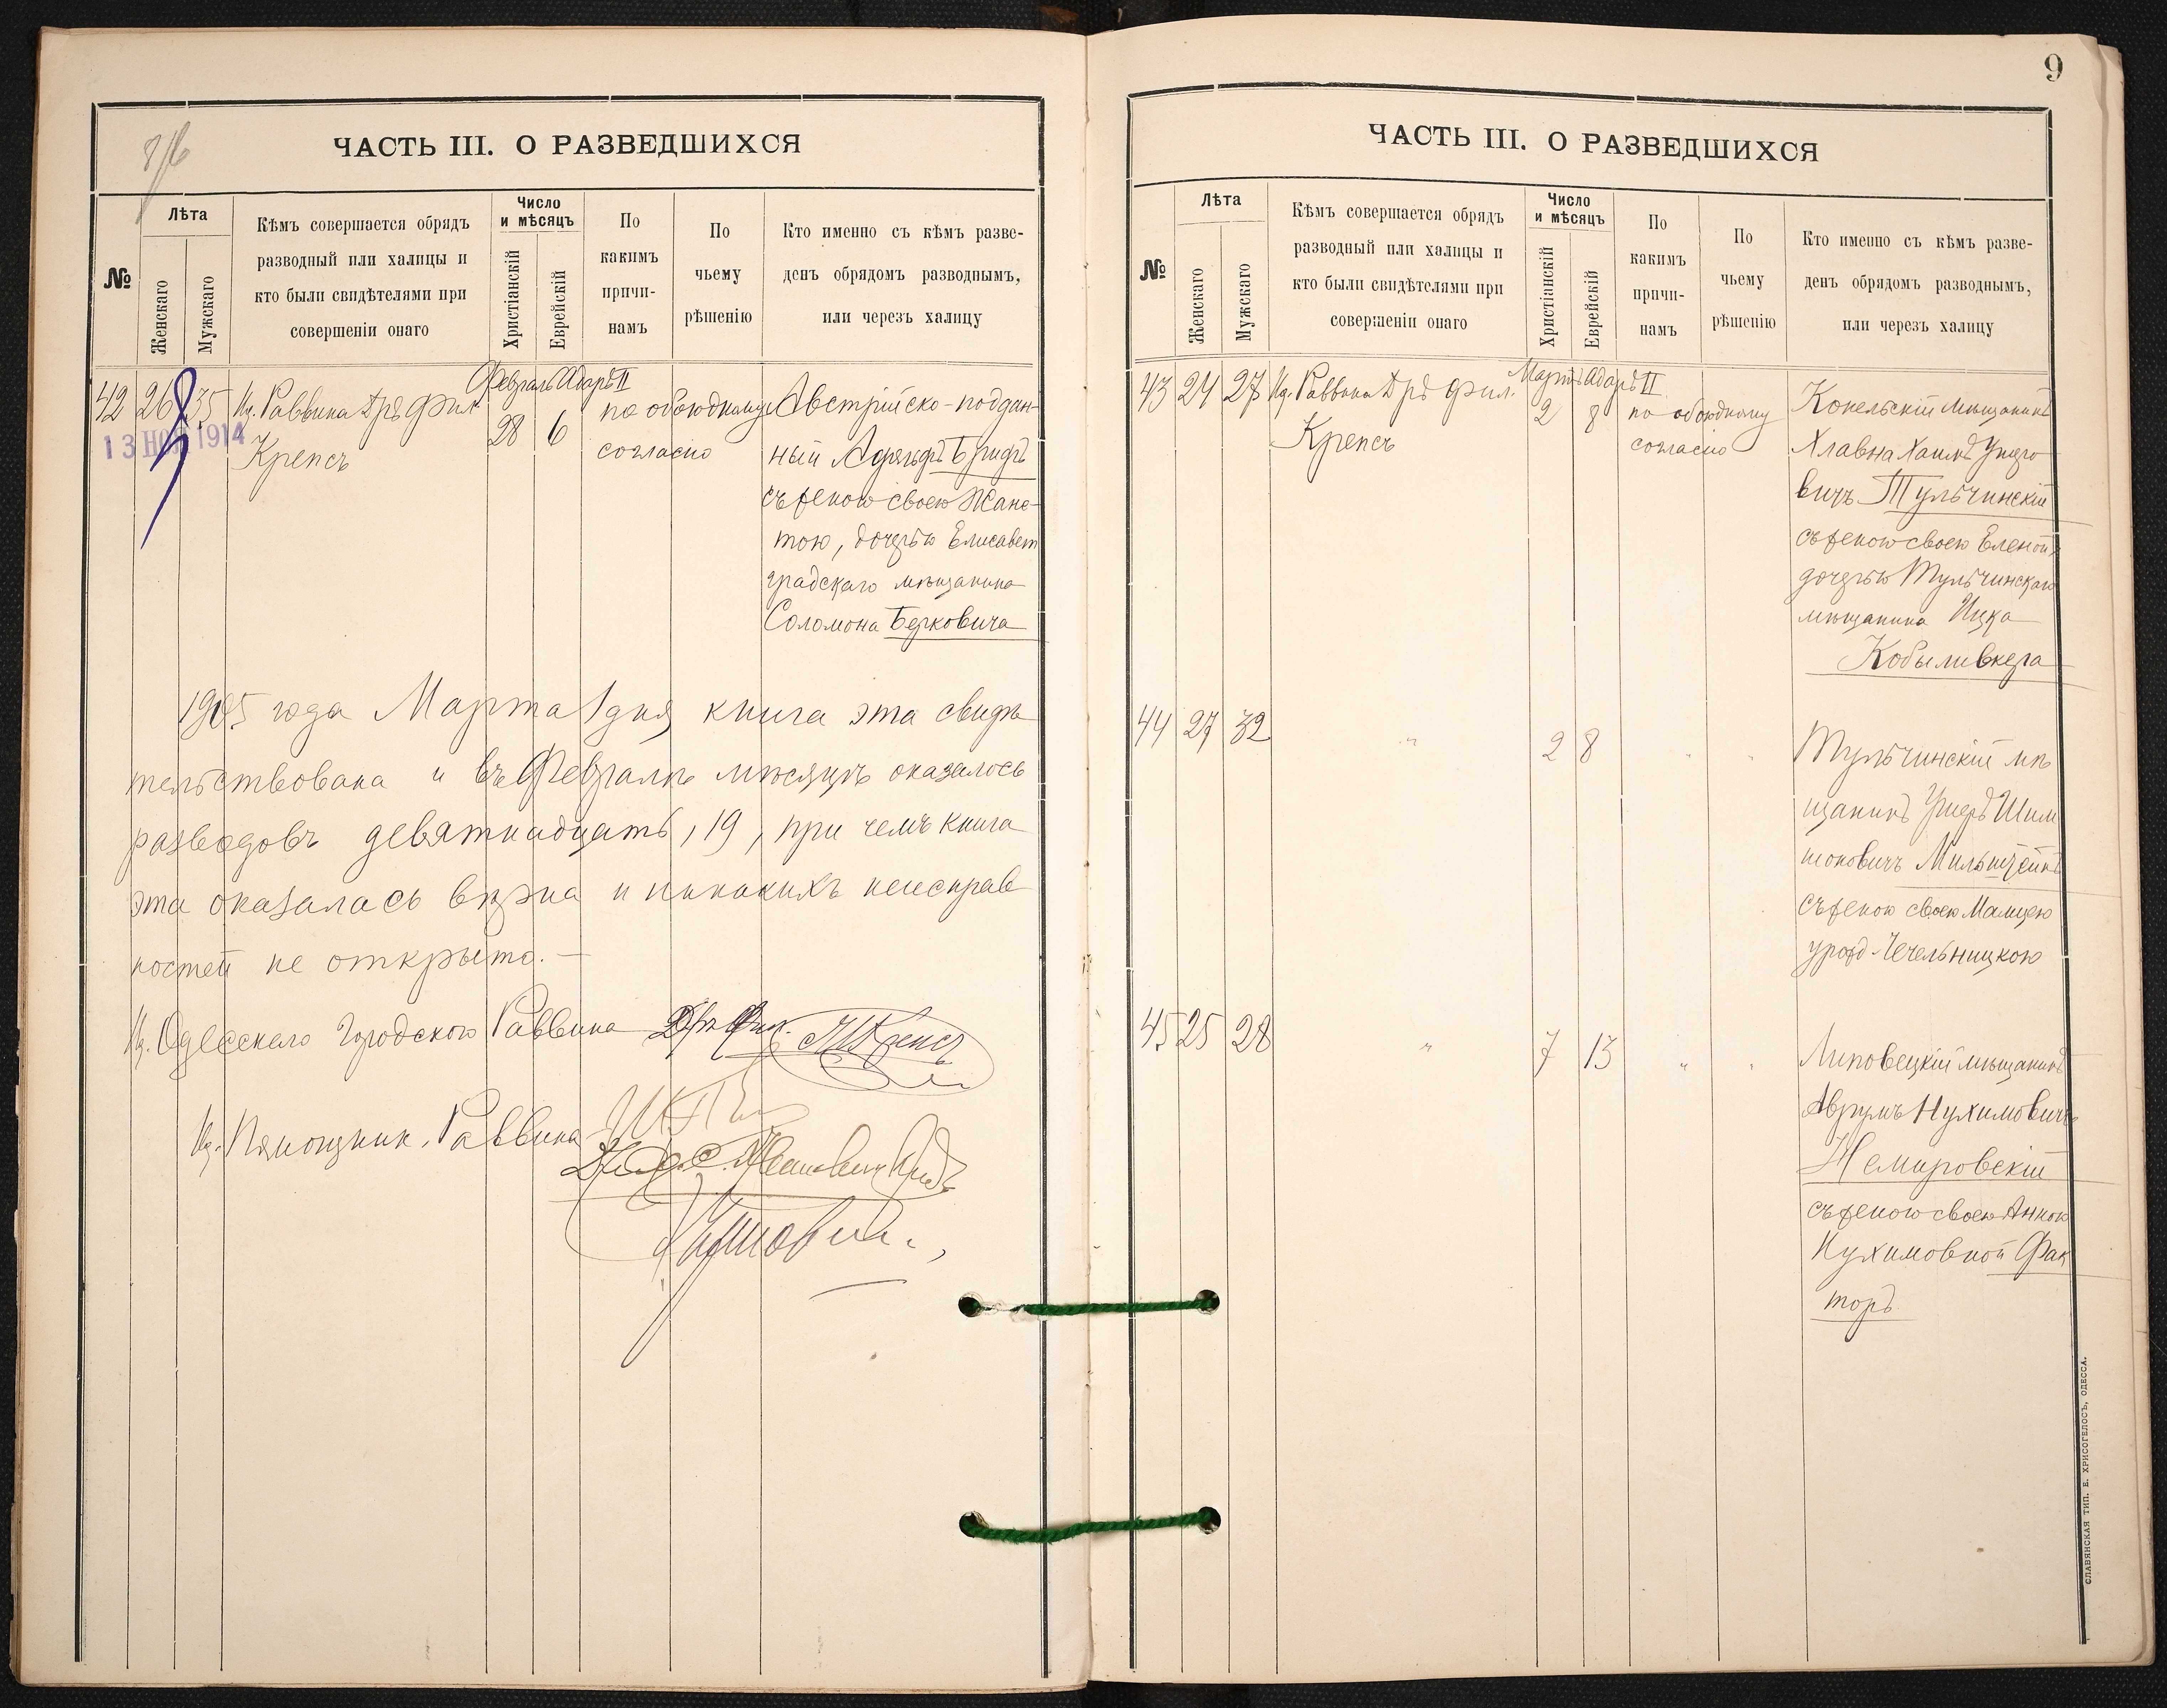 ЧАСТЬ III. О РАЗВЕДШИХСЯ
№
Лѣта
Женскаго
Мужскаго
Кѣмъ совершается обрядъ
разводный или халицы и
кто были свидѣтелями при
совершеніи онаго
Число
и мѣсяцъ
Христіанскій
Еврейскій
По
какимъ
причи-
намъ
По
чьему
рѣшенію
Кто именно съ кѣмъ разве-
денъ обрядомъ разводнымъ,
или черезъ халицу
42 26 35 Раввина Д-ръ Фил.
Крепсъ
13 НОЯ 1914
Февраль Адаръ II
28 6
по обоюдному
согласію
Австрійско-поддан-
ный Адольфъ
съ женою своею Жане-
тою, дочерью Елисавет
градскаго мѣщанина
Соломона Берковича
1905 года Марта 1 дня книга эта свидѣ
тельствована и въ Февралѣ мѣсяцѣ оказалось
разводовъ девятнадцать, 19, при чемъ книга
эта оказалась вѣрна и никакихъ неисправ
ностей не открыто. —
И. Одесскаго Городского Раввина Д-ръ Фил. Крепсъ
И. Помощник. Раввина
9
ЧАСТЬ III. О РАЗВЕДШИХСЯ
№
Лѣта
Женскаго
Мужскаго
Кѣмъ совершается обрядъ
разводный или халицы и
кто были свидѣтелями при
совершеніи онаго
Число
и мѣсяцъ
Христіанскій
Еврейскій
По
какимъ
причи-
намъ
По
чьему
рѣшенію
Кто именно съ кѣмъ разве-
денъ обрядомъ разводнымъ,
или черезъ халицу
43 24 27 Раввина Д-ръ Фил.
Крепсъ
Мартъ Адаръ II
2 8
по обоюдному
согласію
Конельскій мѣщанинъ
Хлавна Хаимъ Ушеро
вичъ Тульчинскій
съ женою своею Еленой
дочерью Тульчинскаго
мѣщанина Ицка
Кобыливкера
44 27 32 " 2 8 " "
Тульчинскій мѣ
щанинъ Ушеръ Шим
шоновичъ Мильштейнъ
съ женою своею Малцею
урожд. Чечельницкою
45 25 28 " 7 13 " "
Липовецкій мѣщанинъ
Аврумъ Нухимовичъ
Немировскій
съ женою своею Анною
Нухимовной Фак
торъ
СЛАВЯНСКАЯ ТИП. Е. ХРИСОГЕЛОСЪ, ОДЕССА.